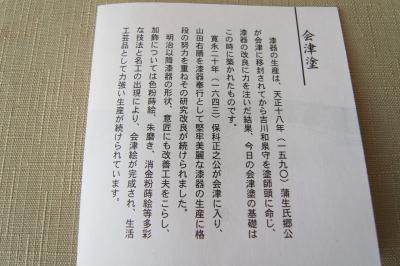 会津塗
漆器の生産は、天正十八年（一五九〇）蒲生氏郷公
が会津に移封されてから吉川和泉守を塗師頭に命じ、
漆器の改良に力を注いだ結果、今日の会津塗の基礎は
この時に築かれたものです。
寛永二十年（一六四三）保科正之公が会津に入り、
山田右勝を漆器奉行として堅牢美麗な漆器の生産に格
段の努力を重ねその研究改良が続けられました。
明治以降漆器の形状、意匠にも改善工夫をこらし、
加飾については色粉蒔絵、朱磨き、消金粉蒔絵等多彩
な技法と名工の出現により、会津絵が完成され、生活
工芸品として力強い生産が続けられています。